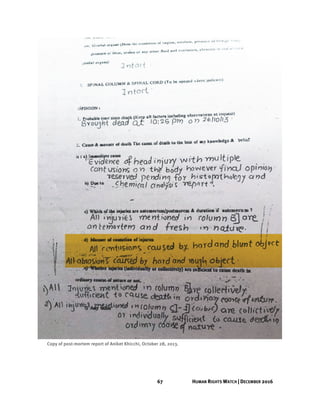 2. SPINAL COLUMN & SPINAL CORD (To be opened where indicated)
Intact.
OPINION :
1. Probable time since death (Keep all factors including observations at inquest)
Brought dead at 10:26 pm on
2. Cause & manner of death The cause of death to the best of my knowledge & belief
Immediate cause
Evidence of head injury with multiple
contusions on the body however final opinion
reserved pending for histopathology and
b) Due to chemical analysis report".
c) Which of the injuries are antemortem/postmortem & duration if antemortem ?
All injuries mentioned in column are
antemortem and fresh in nature.
d) Manner of causation of injuries
All contusions caused by hard and blunt object
All abrasions caused by hard and rough object.
e) Whether injuries (individually or collectively) are sufficient to cause death in
ordinary course of nature or not.
1) All Injuries mentioned in column are collectively
sufficient to cause death in ordinary course of nature.
2) All injuries mentioned in column are collectively
or individually sufficient to cause death in
ordinary course of nature.
Copy of post-mortem report of Aniket Khicchi, October 28, 2013.
67 HUMAN RIGHTS WATCH | DECEMBER 2016